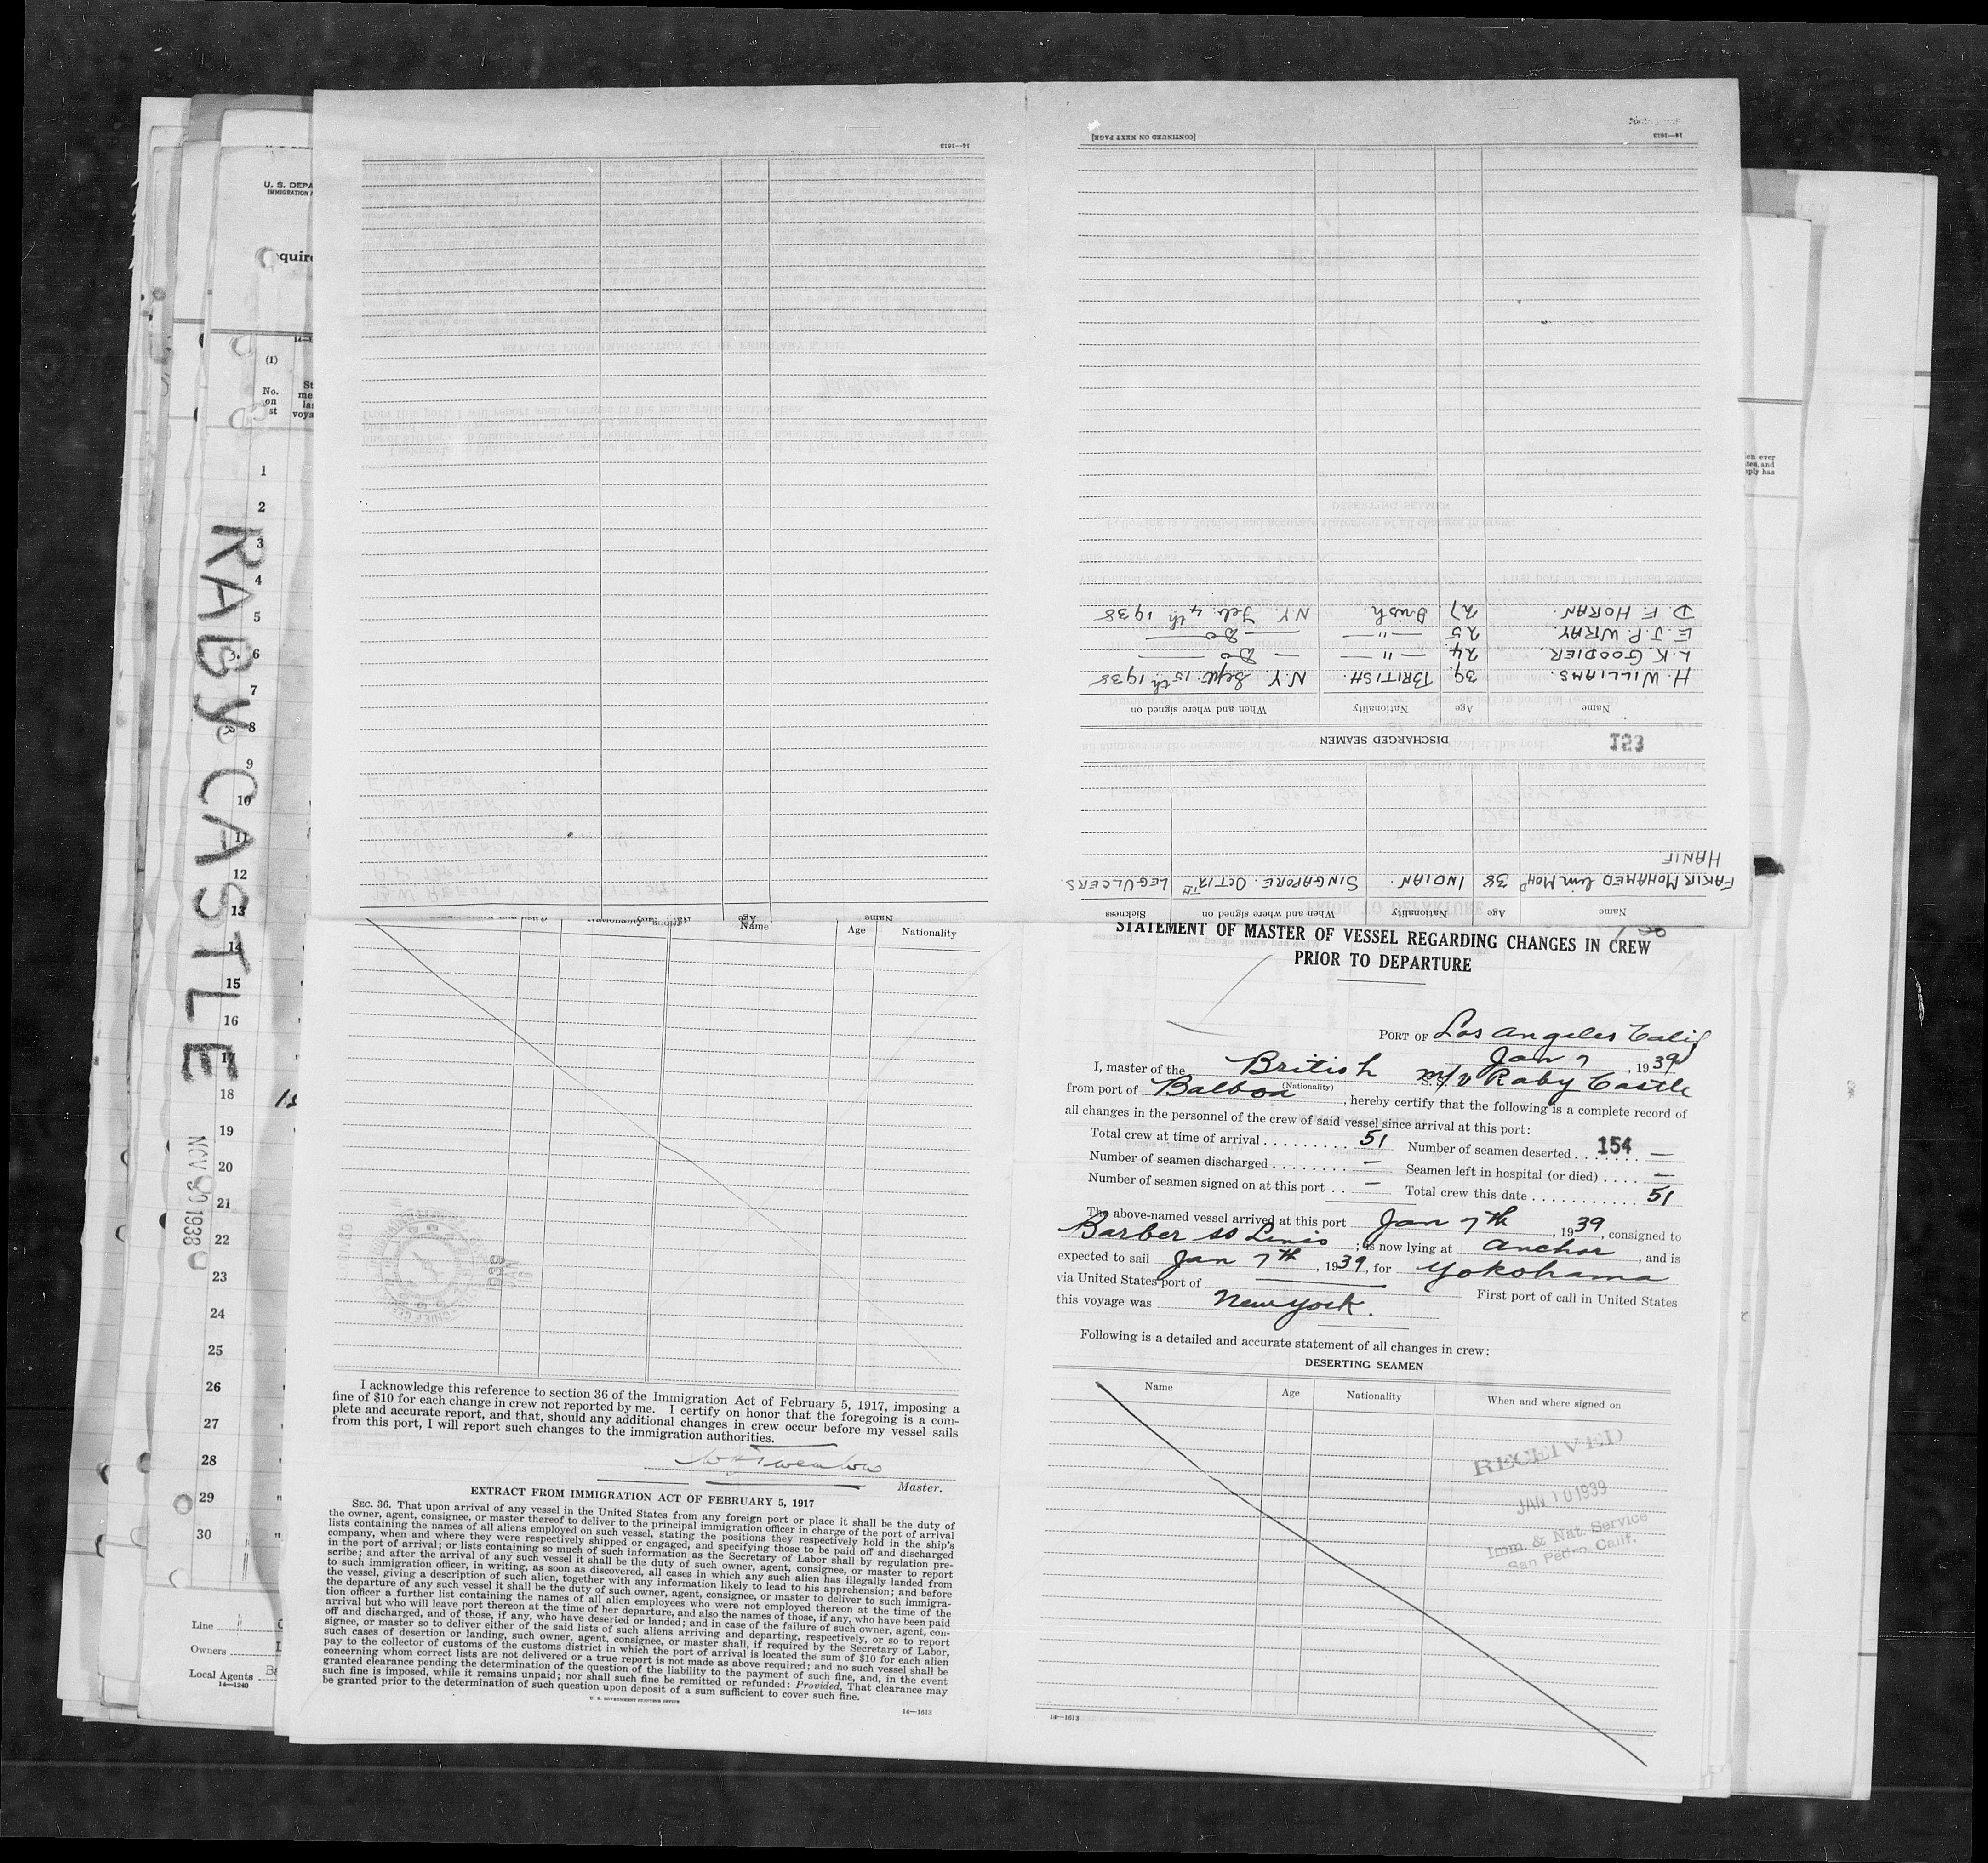 U. S. DEPA
IMMIGRATION
quire
(1)
No.
on
st
1
2
3
4
5
6
7
8
9
10
11
12
13
14
15
16
17
18
19
20
21
22
23
24
25
26
27
28
29
30
51
RABY CASTLE
NOV 30 1938
Line
Owners
Local Agents
14—1240
14—1613
[CONTINUED ON NEXT PAGE]
14—1613
Name Age Nationality When and where signed on Sickness
FAKIR MOHAMED bin MOHD 38 INDIAN. SINGAPORE. OCT 12TH LEG ULCERS.
HANIF
153
DISCHARGED SEAMEN
Name Age Nationality When and where signed on
H. WILLIAMS. 39 BRITISH. N.Y. Sept. 15th 1938
L. K. GOODIER. 24 — " — — Do —
E. J. P. WRAY. 25 — " — — Do —
D. F. HORAN. 27 Irish. N.Y. Feb. 4th 1938
STATEMENT OF MASTER OF VESSEL REGARDING CHANGES IN CREW
PRIOR TO DEPARTURE
PORT OF Los Angeles Calif
Jan 7, 1939
I, master of the British m/v Raby Castle
(Nationality)
from port of Balboa, hereby certify that the following is a complete record of
all changes in the personnel of the crew of said vessel since arrival at this port:
Total crew at time of arrival . . . . . . . . . 51 Number of seamen deserted . . 154 . . —
Number of seamen discharged . . . . . . . . — Seamen left in hospital (or died) . . . . —
Number of seamen signed on at this port . . — Total crew this date . . . . . . . . . . . 51
The above-named vessel arrived at this port Jan 7th, 1939, consigned to
Barber SS Lines; is now lying at anchor, and is
expected to sail Jan 7th, 1939, for Yokohama
via United States port of —— First port of call in United States
this voyage was New York.
Following is a detailed and accurate statement of all changes in crew:
DESERTING SEAMEN
Name Age Nationality When and where signed on
RECEIVED
JAN 10 1939
Imm. & Nat. Service
San Pedro, Calif.
14—1613
Name Age Nationality
I acknowledge this reference to section 36 of the Immigration Act of February 5, 1917, imposing a
fine of $10 for each change in crew not reported by me. I certify on honor that the foregoing is a com-
plete and accurate report, and that, should any additional changes in crew occur before my vessel sails
from this port, I will report such changes to the immigration authorities.
Master.
EXTRACT FROM IMMIGRATION ACT OF FEBRUARY 5, 1917
SEC. 36. That upon arrival of any vessel in the United States from any foreign port or place it shall be the duty of
the owner, agent, consignee, or master thereof to deliver to the principal immigration officer in charge of the port of arrival
lists containing the names of all aliens employed on such vessel, stating the positions they respectively hold in the ship's
company, when and where they were respectively shipped or engaged, and specifying those to be paid off and discharged
in the port of arrival; or lists containing so much of such information as the Secretary of Labor shall by regulation pre-
scribe; and after the arrival of any such vessel it shall be the duty of such owner, agent, consignee, or master to report
to such immigration officer, in writing, as soon as discovered, all cases in which any such alien has illegally landed from
the vessel, giving a description of such alien, together with any information likely to lead to his apprehension; and before
the departure of any such vessel it shall be the duty of such owner, agent, consignee, or master to deliver to such immigra-
tion officer a further list containing the names of all alien employees who were not employed thereon at the time of the
arrival but who will leave port thereon at the time of her departure, and also the names of those, if any, who have been paid
off and discharged, and of those, if any, who have deserted or landed; and in case of the failure of such owner, agent, con-
signee, or master so to deliver either of the said lists of such aliens arriving and departing, respectively, or so to report
such cases of desertion or landing, such owner, agent, consignee, or master shall, if required by the Secretary of Labor,
pay to the collector of customs of the customs district in which the port of arrival is located the sum of $10 for each alien
concerning whom correct lists are not delivered or a true report is not made as above required; and no such vessel shall be
granted clearance pending the determination of the question of the liability to the payment of such fine, and, in the event
such fine is imposed, while it remains unpaid; nor shall such fine be remitted or refunded: Provided, That clearance may
be granted prior to the determination of such question upon deposit of a sum sufficient to cover such fine.
U. S. GOVERNMENT PRINTING OFFICE
14—1613